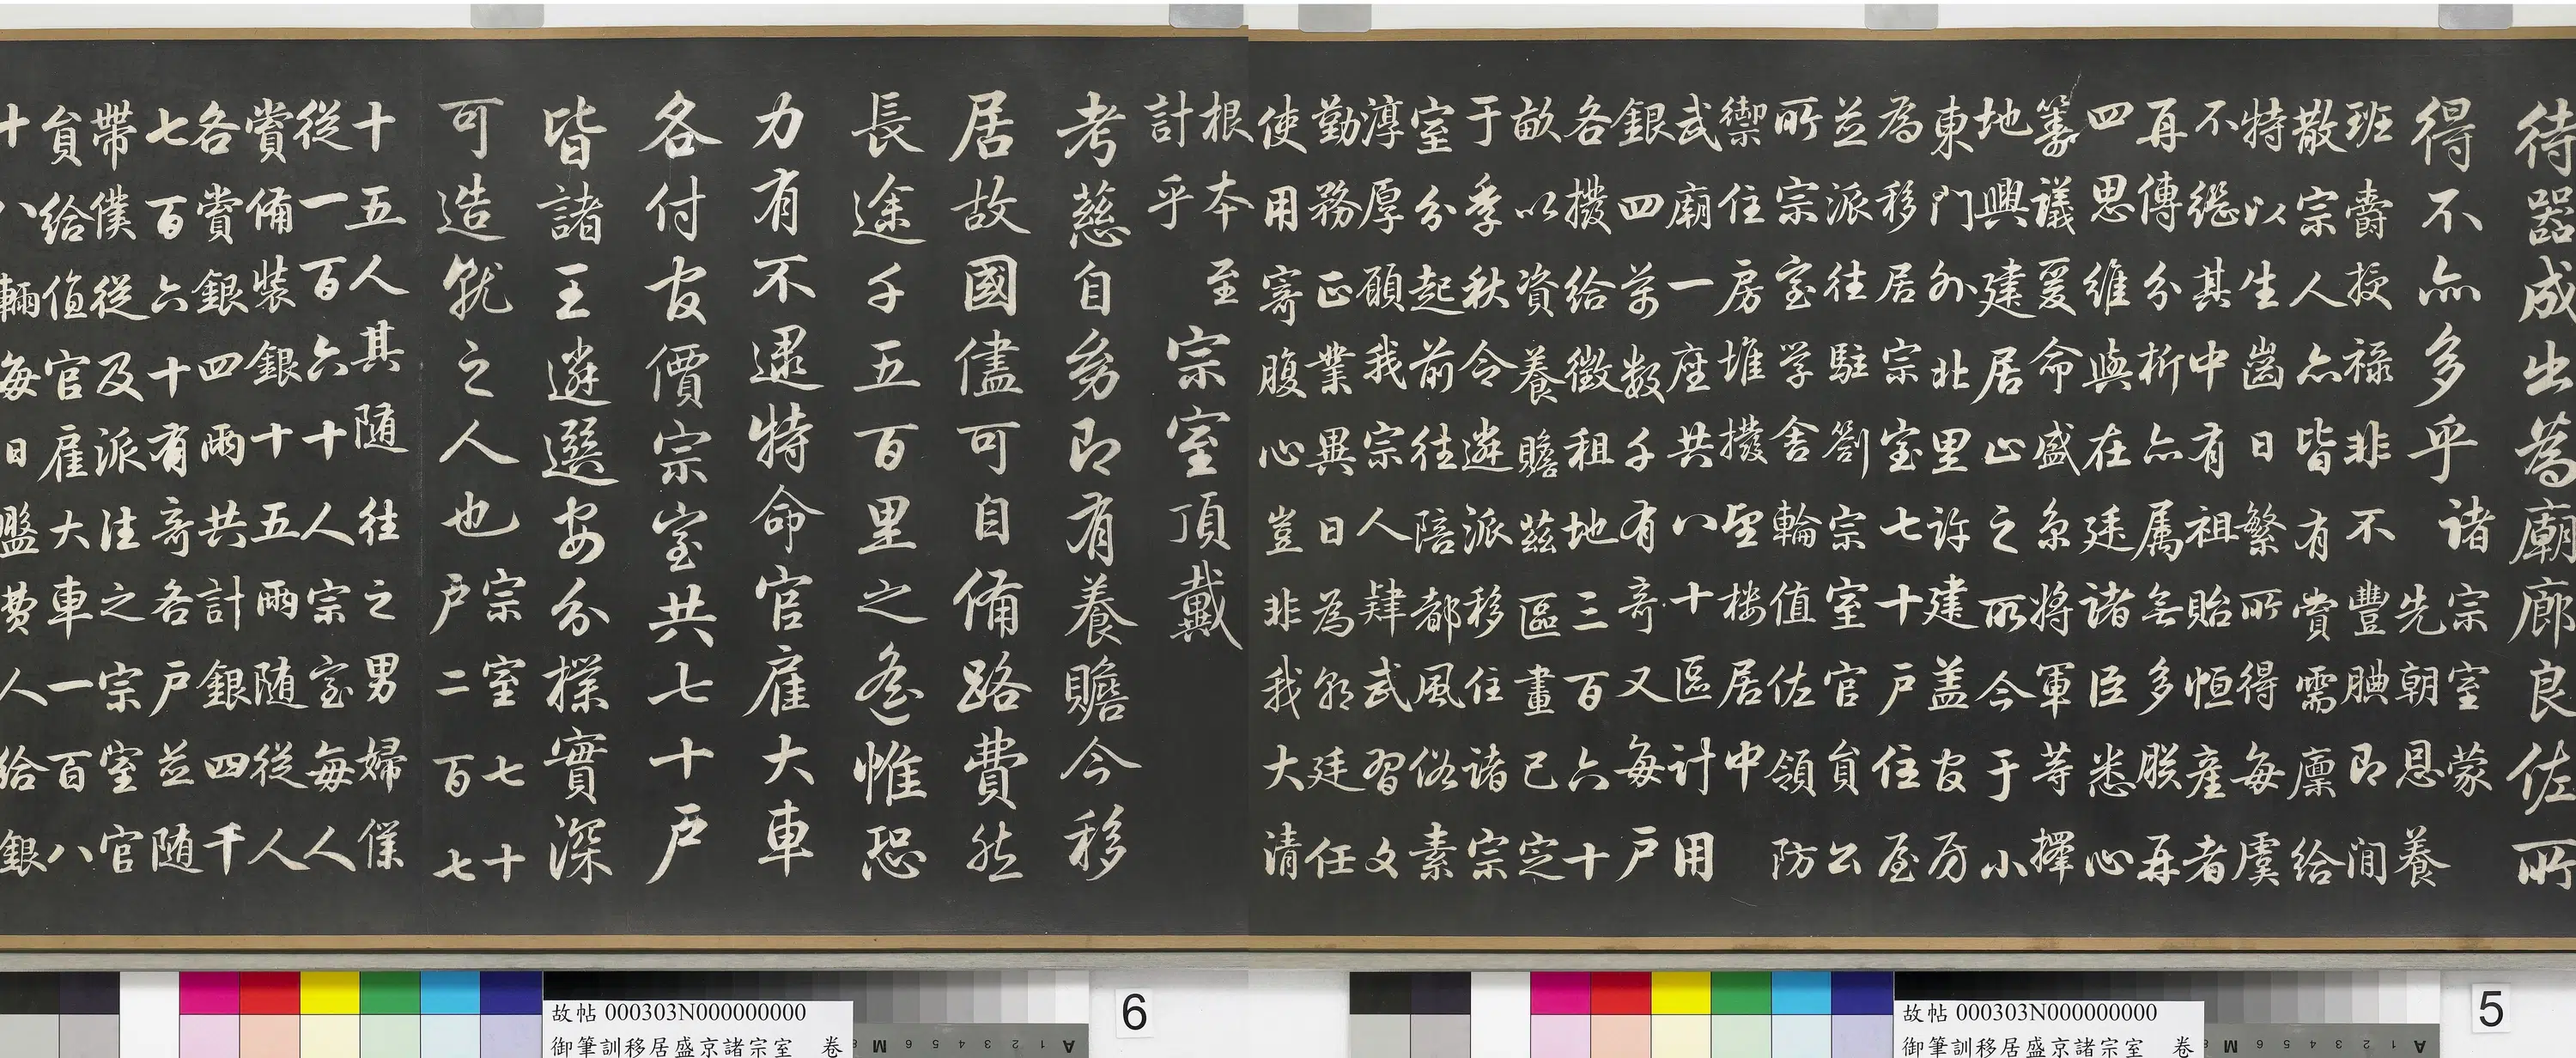 待器成出為廟廊良佐所
得不亦多乎
諸宗室蒙
先朝恩養
班爵授禄非不豐腆即閒
散宗人亦皆有賞需廪給
特以生齒日繁所得每虞
不繼其中有祖貽恒產者
再傳分析亦属無多朕再
四思維與在廷諸臣悉心
籌議爰命盛京將軍等擇
地興建居止之所今于小
東門外北里許建蓋官房
為移居宗室七十戶住屋
並派往駐劄宗室官員公
所宗室学舍輪值佐領防
禦住房堆撥望楼居中
武廟一座共八十區計用
銀四萬数千有奇又每戶
各撥給徵租地三百六十
畝以資養贍茲區畫已定
于季秋令遴派移住諸宗
室分起前往陪都風俗素
淳厚願我宗人肄武習文
勤務正業異日為朝廷任
使用寄腹心豈非我大清
根本至
計乎
宗室頂戴
考慈自幼即有養贍今移
居故國儘可自備路費然
長途千五百里之遙惟恐
力有不逮特命官雇大車
各付官價宗室共七十戶
皆諸王遴選安分樸實深
可造就之人也
宗室七十
戶二百七
十五人其随往之男婦僕
從一百六十人宗室每人
賞備裝銀十五兩随從人
各賞銀四兩共計銀四千
七百六十有奇各戶並随
帶僕從及派往之宗室官
員給值官雇大車一百八
十八輛每日盤費人給銀
5
故帖 000303N000000000
御筆訓移居盛京諸宗室 卷
6
故帖 000303N000000000
御筆訓移居盛京諸宗室 卷